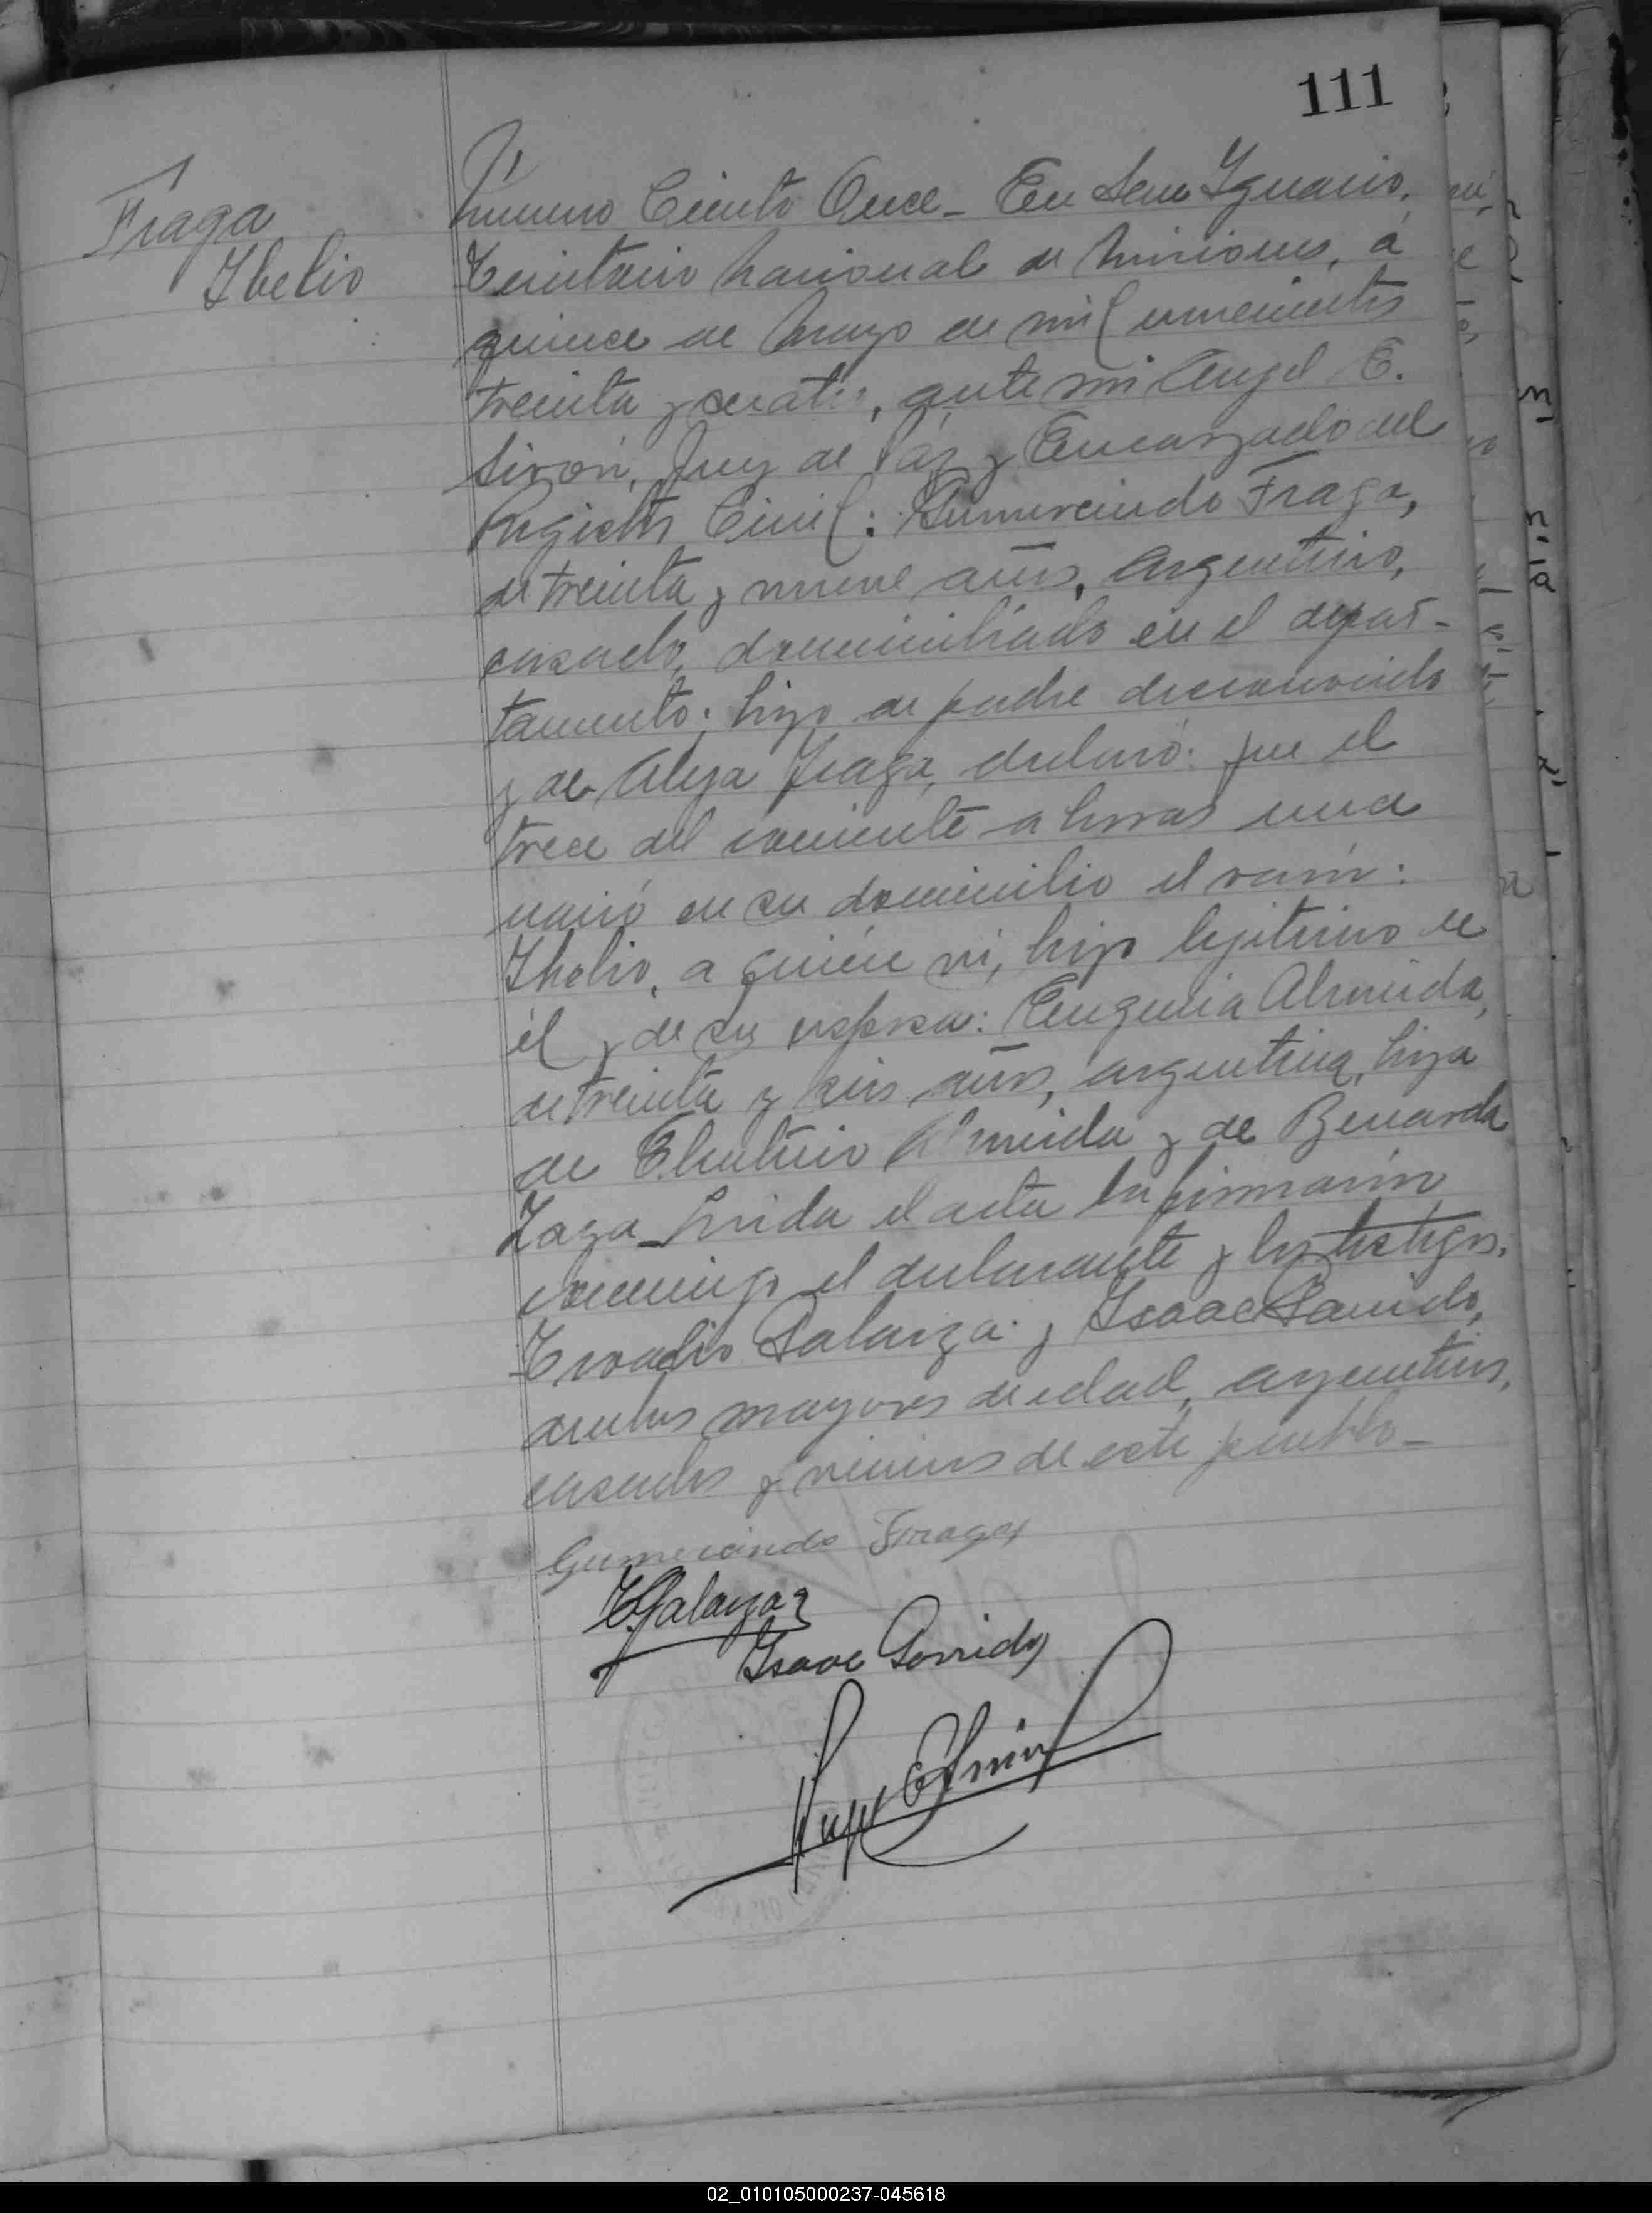 111
Fraga
Ibelio
Número Ciento Once - En San Ignacio,
Territorio Nacional de Misiones, á
quince de Mayo de mil novecientos
treinta y cuatro, ante mi Angel E.
Sirón, Juez de Paz y Encargado del
Registro Civil: Gumercindo Fraga,
de treinta y nueve años, argentino,
casado, domiciliado en el depar-
tamento; hijo de padre desconocido
y de Aleja Fraga, declaró: que el
trece del corriente a horas una
nació en su domicilio el varón:
Ibelio, a quien ví, hijo legitimo de
él y de su esposa: Eugenia Almeida,
de treinta y seis años, argentina, hija
de Eleuterio Almeida y de Benarda
Zaza - Leida el acta la firmaron
conmigo el declarante y los testigos,
Galarza y Isaac Garrido,
ambos mayores de edad, argentinos,
casados y vecinos de este pueblo -
Gumercindo Fraga
Galarza
Isaac Garrido
02_010105000237-045618